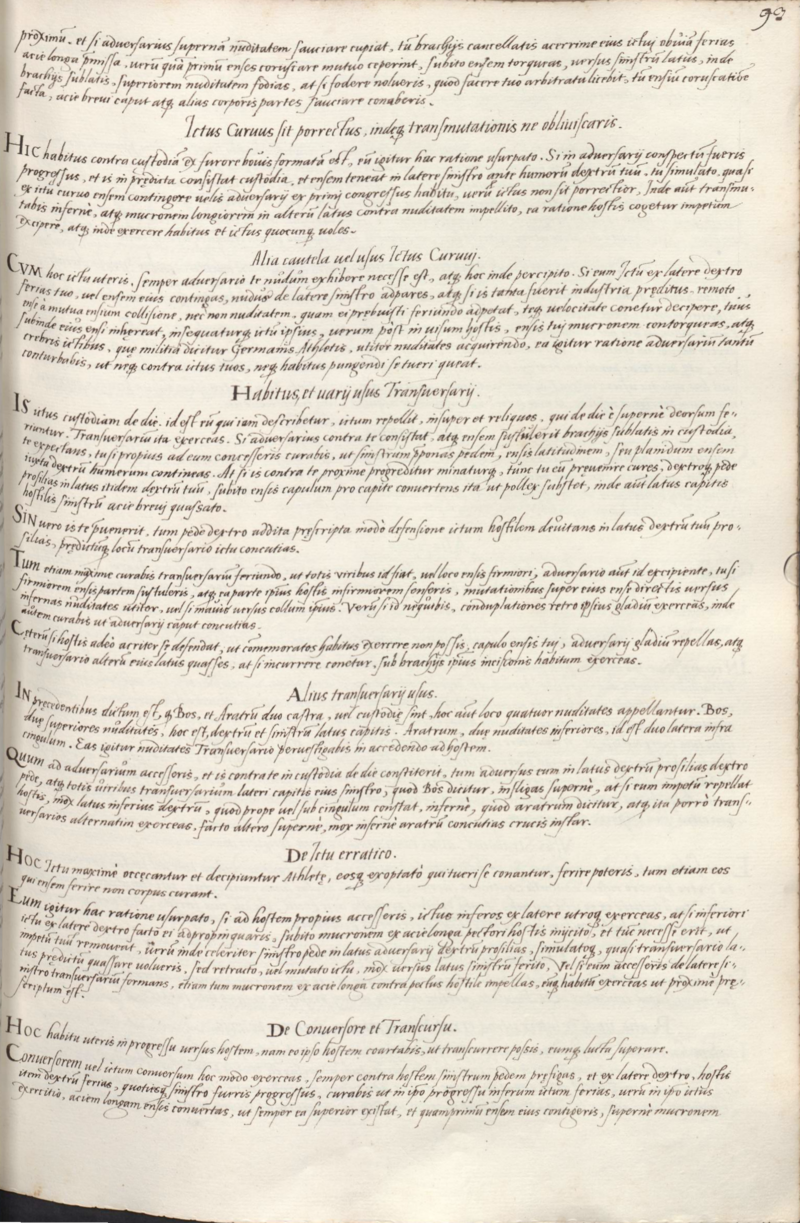 93
proximũ. et si adversarius supernã nuditatem sauciare cupiat, tũ brachijs cancellatis acerrime eius ictuj obviã ferius
acie longa pmissa. verũ quã primũ enses coruscare mutuo ceperint, subito ensem torqueas, versus sinistrũ latus, inde
brachijs sublatis, superiorem nuditatem fodias, at si fodere nolueris, quod facere tuo arbitratu licebit, tũ ensiũ coruscatiõe
facta, acie brevi caput atq, alias corporis partes sauciare conaberis.
Ictus Curuus sit porrectus, indeq transmutationis ne obliuiscaris.
HIC habitus contra custodiã ex furore bouis formatã est, eũ igitur hac ratione usurpato. Si in adversarij conspectũ fueris
progressus, et is in prędicta consistat custodia, et ensem teneat in latere sinistro ante humerũ dextrũ tuũ, tu simulato, quasi
ex ictu curuo ensem contingere velis adversarij ex primj congressus habitu, verũ ictus non sit porrectior, Inde aut transmu-
tabis infernè, atq, mucronem longiorem in alterũ latus contra nuditatem impellito, ea ratione hostis cogetur impetum
excipere, atq, inde exercere habitus et ictus quocunq, voles.
Alia cautela vel usus Ictus Curuuj.
CVM hoc ictu uteris, semper adversario te nudum exhibere necesse est, atq, hoc inde percipito. Si eum Ictũ ex latere dextro
ferias tuo, vel ensem eius contingas, nudus de latere sinistro adpares, atq, si is tanta fuerit industria pręditus, remoto
ense a mutua ensium collisione, nec non nuditatem, quam ei prębuisti feriundo adpetat, teq, velocitate conetur decipere, tuus
subinde eius ensi inhereat, insequaturq, ictũ ipsius, verum post in usum hostis, ensis tuj mucronem contorqueas, atq,
crebris ictibus, quę militia dicitur Germanis Athletis, utitor nuditates acquirendo, ea igitur ratione adversariũ tantũ
conturbabis, ut neq, contra ictus tuos, neq, habitus pungendi se tueri queat.
Habitus, et varij usus Transuersarij.
IS ictus custodiam de die, id est eũ qui iam describetur, ictum repellit, insuper et reliquos, qui de die è supernè deorsum fe-
riuntur. Transuersariũ ita exerceas. Si adversarius contra te consistat, atq, ensem sustulerit brachijs sublatis in custodia,
te expectans, tu si propius ad eum concesseris curabis, ut sinistram pponas pedem, ensis latitudinem, seu planũ dum ensem
iuxta dextrũ humerum contineas. At si is contra te proxime progreditur minaturq, tunc tu eũ prevenire cures, dextroq, pede
prosilias in latus itidem dextrũ tuũ, subito ensis capulum pro capite convertens ita ut pollex substet, inde aut latus capitis
hostilis sinistrũ acie brevj quassato.
SIN vero is te pręvenerit, tum pede dextro addita pręscripta modò defensione ictum hostilem devitans in latus dextrũ tuũ pro-
silias, prędictumq, locũ transuersario ictu concutias.
Tum etiam maxime curabis transuersariũ feriundo, ut totis viribus id fiat, vel loco ensis firmiorj, adversario aut id excipiente, tu si
firmiorem ensis partem sustuleris, atq, ea parte ipius hostis infirmiorem senseris, mutationibus super eius ensi directis versus
infernas nuditates utitor, vel si mavis versus collum ipius. Verũ si id nequibis, conduplationes retro ipsius gladiũ exerceas, inde
autem curabis ut adversarij caput concutias.
Cęterũ si hostis adeò acriter se defendat, ut comemoratos habitus exercere non possis, capulo ensis tuj, adversarij gladiũ repellas, atq,
transuersario alterũ eius latus quasses, at si incurrere conetur, sub brachijs ipius incisionis habitum exerceas.
Alius transuersarij usus.
IN precedentibus dictum est, q Bos, et Aratrũ duo castra, vel custodię sint, hoc aut loco quatuor nuditates appellantur. Bos,
duę superiores nuditates, hoc est, dextrũ et sinistrũ latus capitis. Aratrum, duę nuditates inferiores, id est duo latera infra
cingulum. Eas igitur nuditates Transuersario pervestigabis in accedendo ad hostem.
Quum ad adversarium accesseris, et is contra te in custodia de die constiterit, tum adversus eum in latus dextrũ prosilias dextro
pede, atq, totis viribus transuersarium lateri capitis eius sinistro, quod Bos dicitur, infligas supernè, at si eum impetũ repellat
hostis, mox latus inferius dextrũ, quod prope vel sub cingulum constat, infernè, quod aratrum dicitur, atq, ita porrò trans-
versarios alternatim exerceas, facto altero supernè, mox infernè aratrũ concutias crucis instar.
De Ictu erratico.
HOC Ictu maximè occęcantur et decipiuntur Athletę, eosq, exoptatò qui tueri se conantur, ferire poteris, tum etiam eos
qui ensem ferire non corpus curant.
Eum igitur hac ratione usurpato, si ad hostem propius accesseris, ictus inferos ex latere utroq, exerceas, at si inferiori
ictu ex latere dextro facto ei adpropinquaris, subito mucronem ex acie longa pectori hostis injicito, et tũc necesse erit, ut
impetũ tuũ removeat, verũ inde celeriter sinistro pede in latus adversarij dextrũ prosilias, simulatoq, quasi transuersario la-
tus prędictũ quassare volueris. sed retracto, vel mutato ictu, mox versus latus sinistrũ ferito, Vel si eum accesseris de latere si-
nistro transuersariũ formans, etiam tum mucronem ex acie longa contra pectus hostile impellas, eaq, habitũ exerceas ut proxime prę-
scriptum est.
De Conversore et Transcursu.
HOC habitu uteris in progressu versus hostem, nam eo ipso hostem coartabis, ut transcurrere possis, eumq, lucta superare.
Conversorem vel ictum conversum hoc modo exerceas, semper contra hostem sinistrum pedem pręfigas, et ex latere dextro, hostis
item dextrũ ferias, quotiesq, sinistro fueris progressus, curabis ut in ipo progressu inferum ictum ferias, verũ in ipo ictus
exercitio, aciem longam ensis convertas, ut semper ea superior existat, et quamprimũ ensem eius contigeris, supernè mucronem